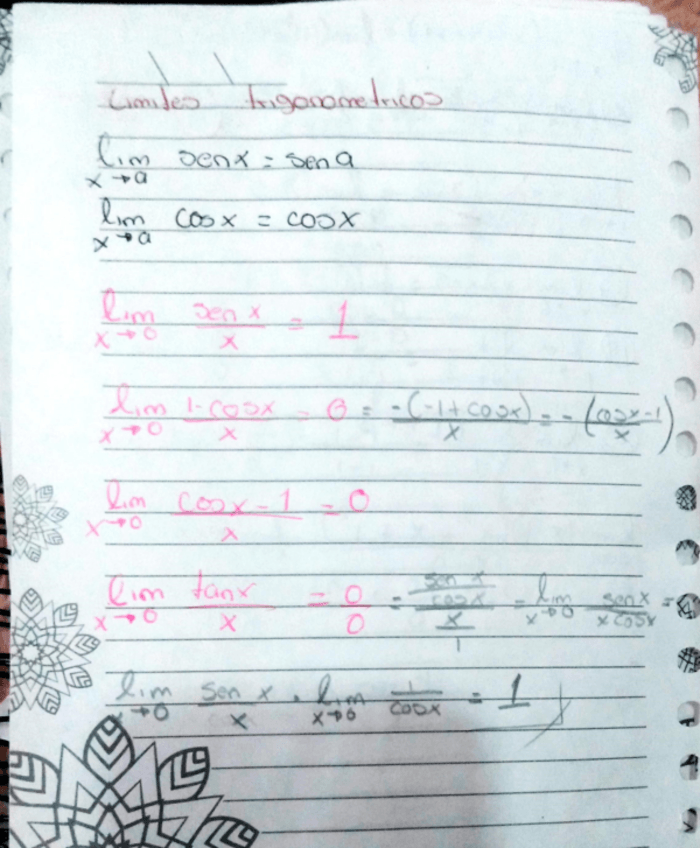 Limites trigonometricos
lim x→a senx = sen a
lim x→a cosx = cosx
lim x→0 sen x / x = 1
lim x→0 1-cosx / x = 0 = -(-1+cosx) / x = - (cosx-1 / x)
lim x→0 cosx-1 / x = 0
lim x→0 tanx / x = 0/0 = (sen x / cosx) / (x / 1) = lim x→0 senx / x cosx =
lim x→0 sen x / x · lim x→0 1 / cosx = 1